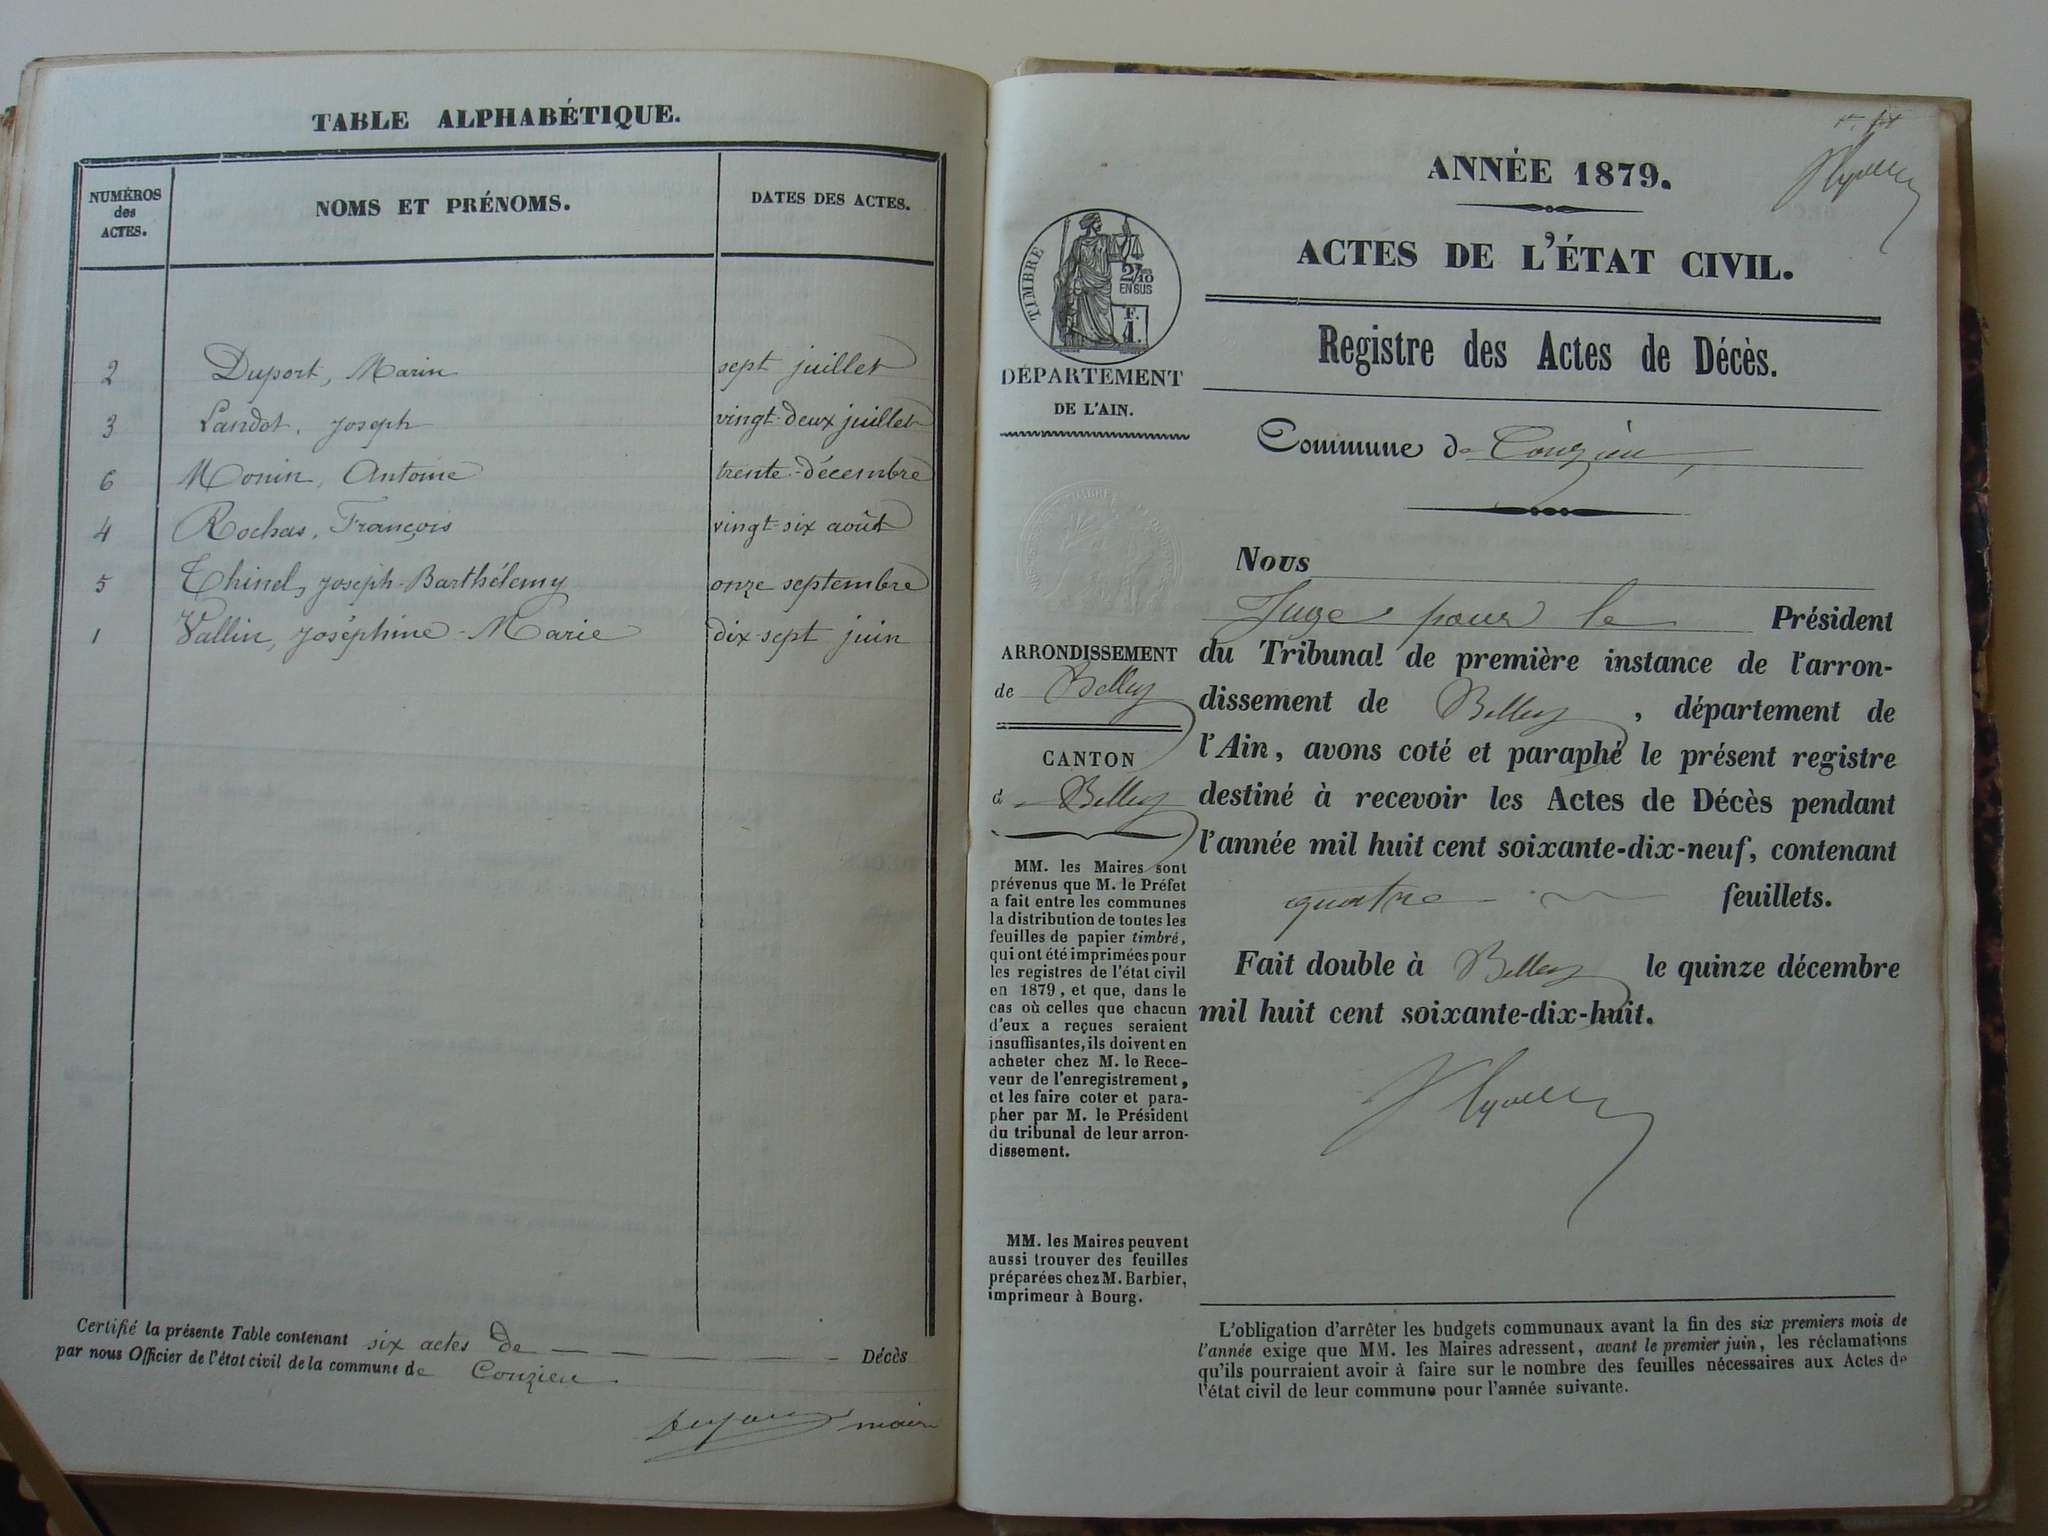 TABLE ALPHABÉTIQUE.
NUMÉROS des ACTES.
NOMS ET PRÉNOMS.
DATES DES ACTES.
2 Duport, Marin sept juillet
3 Landot, Joseph vingt-deux juillet
6 Monin, Antoine trente-décembre
4 Rochas, François vingt-six août
5 Thinel, Joseph-Barthélemy onze septembre
1 Vallin, Joséphine-Marie dix-sept juin
Certifié la présente Table contenant six actes de Décès
par nous Officier de l'état civil de la commune de Conzieu
maire
ANNÉE 1879.
ACTES DE L'ÉTAT CIVIL.
Registre des Actes de Décès.
Commune de Conzieu
TIMBRE
2/10
EN SUS
F.
1.
DÉPARTEMENT
DE L'AIN.
ARRONDISSEMENT
de Belley
CANTON
d Belley
MM. les Maires sont
prévenus que M. le Préfet
a fait entre les communes
la distribution de toutes les
feuilles de papier timbré,
qui ont été imprimées pour
les registres de l'état civil
en 1879, et que, dans le
cas où celles que chacun
d'eux a reçues seraient
insuffisantes, ils doivent en
acheter chez M. le Rece-
veur de l'enregistrement,
et les faire coter et para-
pher par M. le Président
du tribunal de leur arron-
dissement.
MM. les Maires peuvent
aussi trouver des feuilles
préparées chez M. Barbier,
imprimeur à Bourg.
Nous
Juge pour le Président
du Tribunal de première instance de l'arron-
dissement de Belley, département de
l'Ain, avons coté et paraphé le présent registre
destiné à recevoir les Actes de Décès pendant
l'année mil huit cent soixante-dix-neuf, contenant
quatre feuillets.
Fait double à Belley le quinze décembre
mil huit cent soixante-dix-huit.
L'obligation d'arrêter les budgets communaux avant la fin des six premiers mois de
l'année exige que MM. les Maires adressent, avant le premier juin, les réclamations
qu'ils pourraient avoir à faire sur le nombre des feuilles nécessaires aux Actes de
l'état civil de leur commune pour l'année suivante.